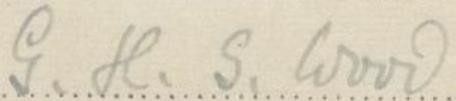 G. H. S. Wood